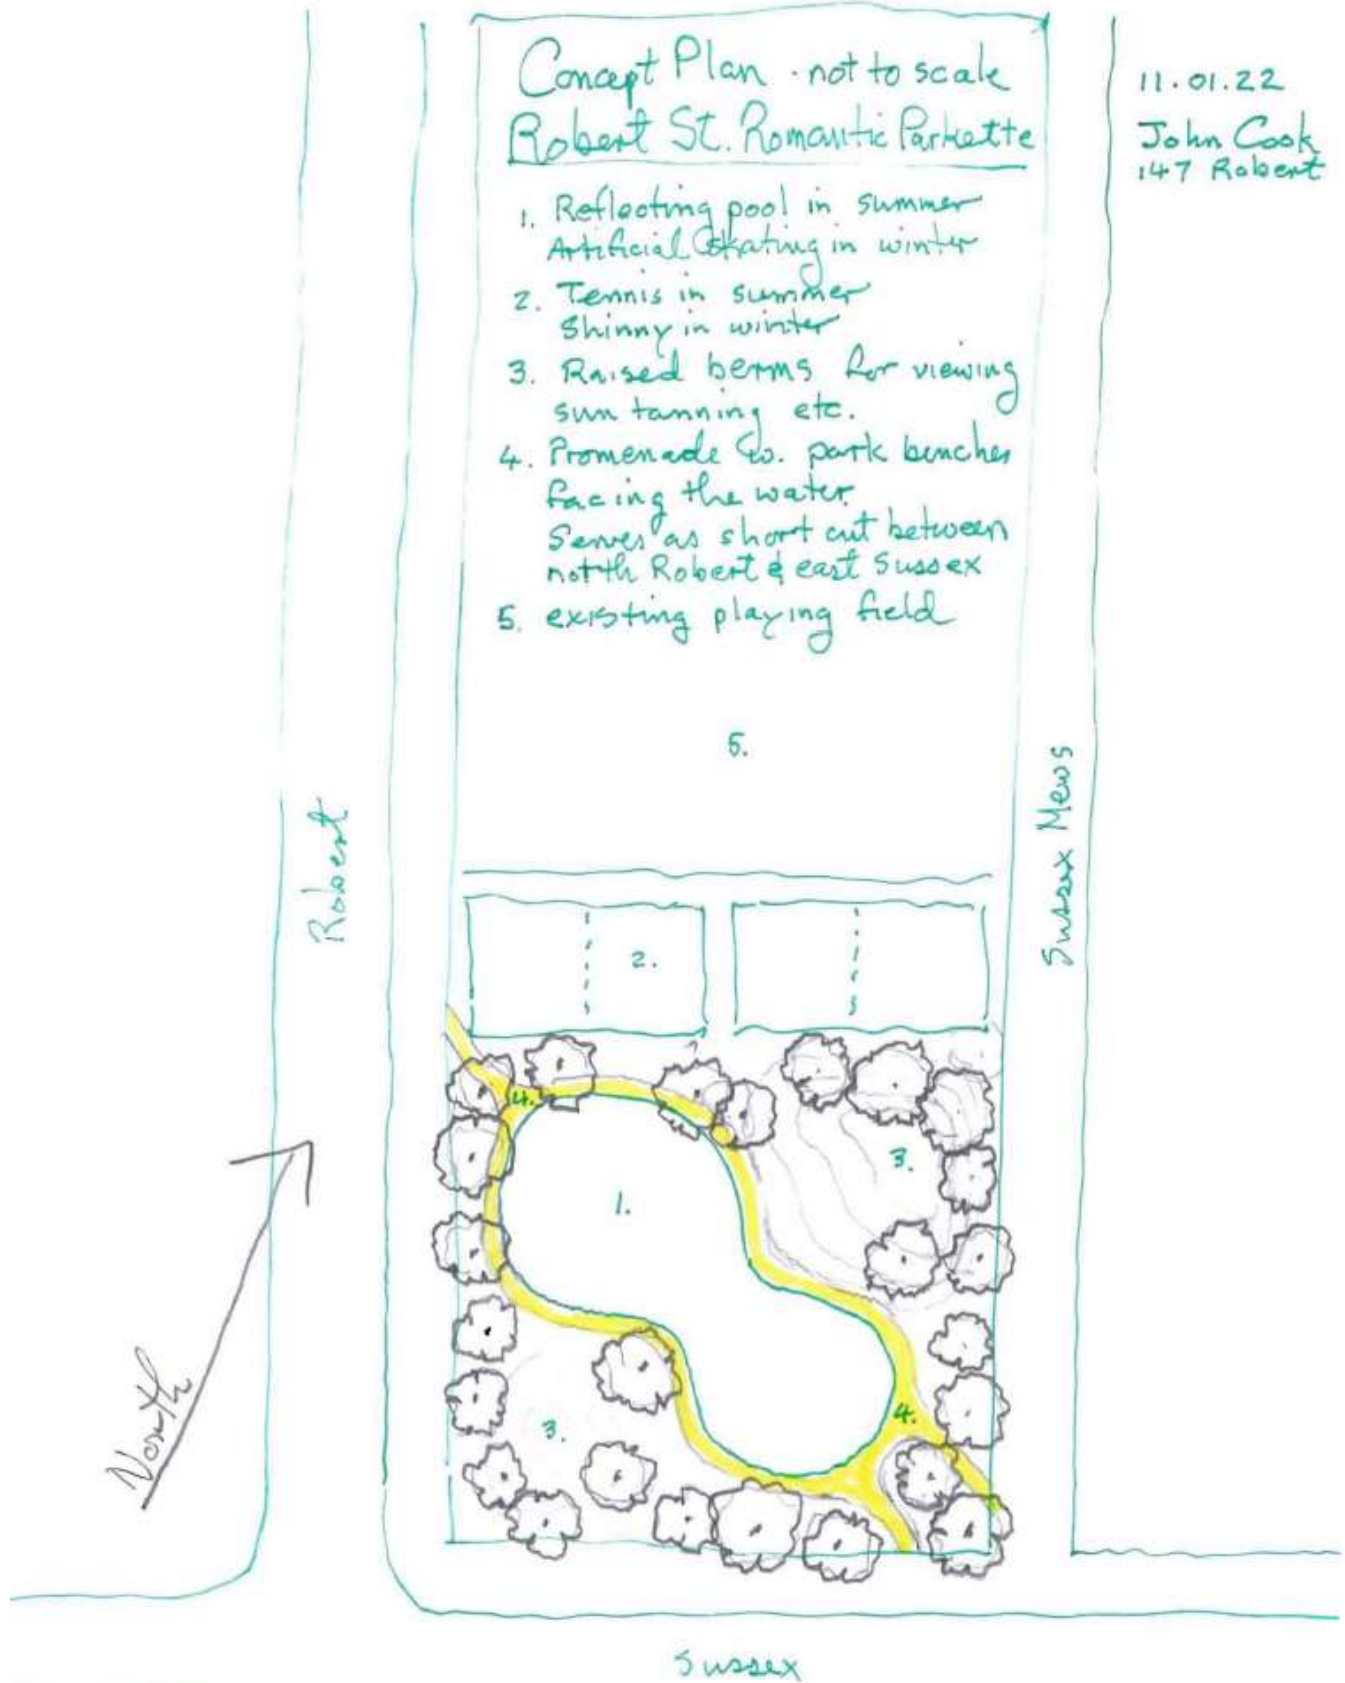 Concept Plan . not to scale
Robert St. Romantic Parkette
11.01.22
John Cook
147 Robert
1. Reflecting pool in summer
Artificial skating in winter
2. Tennis in summer
Shinny in winter
3. Raised berms for viewing
sun tanning etc.
4. Promenade w. park benches
facing the water.
Serves as short cut between
north Robert & east Sussex
5. existing playing field
5.
Robert
Sussex Mews
2.
4.
3.
1.
North
4.
3.
Sussex